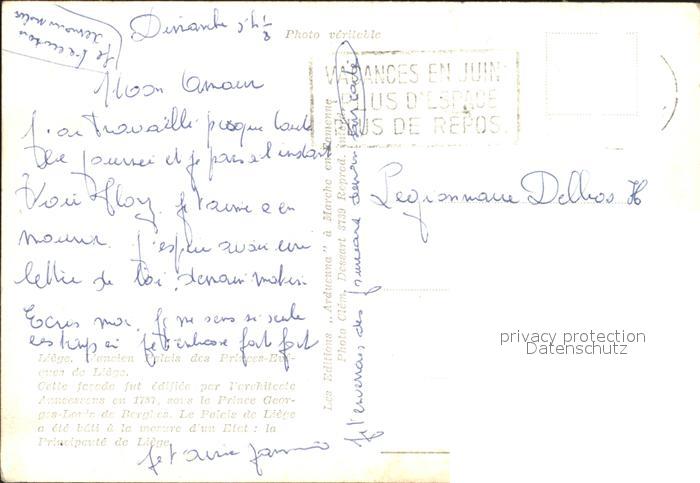 je t'écrirai
demain
Dimanche
Photo véritable
Mon amour
VACANCES EN JUIN
PLUS D'ESPACE
PLUS DE REPOS.
J'ai travaillé presque toute
la journée et je pars à l'instant
voir Floy. je t'aime a en
mourir. J'espère avoir une
lettre de toi, demain matin.
Ecris moi, je me sens si seule
ces temps ci je t'embrasse fort fort
Liège. L'ancien Palais des Princes-Evê-
ques de Liège.
Cette façade fut édifiée par l'architecte
Annessens en 1737, sous le Prince Geor-
ges-Louis de Berghes. Le Palais de Liège
a été bâti à la mesure d'un Etat : la
Principauté de Liège.
je t'aime
Les Editions "Arduenna" à Marche en Famenne
Photo Clém. Dessart 3739 Reprod.
je t'enverrais des demain
Légionnaire Delbos H
privacy protection
Datenschutz